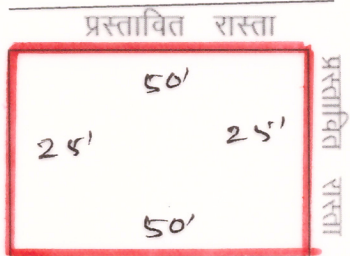 प्रस्तावित रास्ता
50'
25' 25'
50'
प्रस्तावित रास्ता